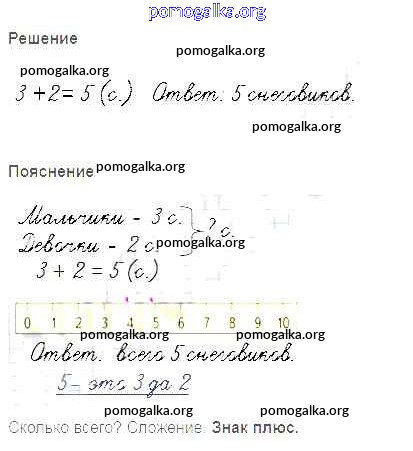 pomogalka.org
Решение
pomogalka.org
pomogalka.org
3 + 2 = 5 (с.) Ответ: 5 снеговиков.
pomogalka.org
Пояснение pomogalka.org
Мальчики - 3 с.
? с.
Девочки - 2 с. pomogalka.org
3 + 2 = 5 (с.)
0 1 2 3 4 5 6 7 8 9 10
pomogalka.org pomogalka.org
Ответ: всего 5 снеговиков.
5 - это 3 да 2
pomogalka.org pomogalka.org
Сколько всего? Сложение. Знак плюс.